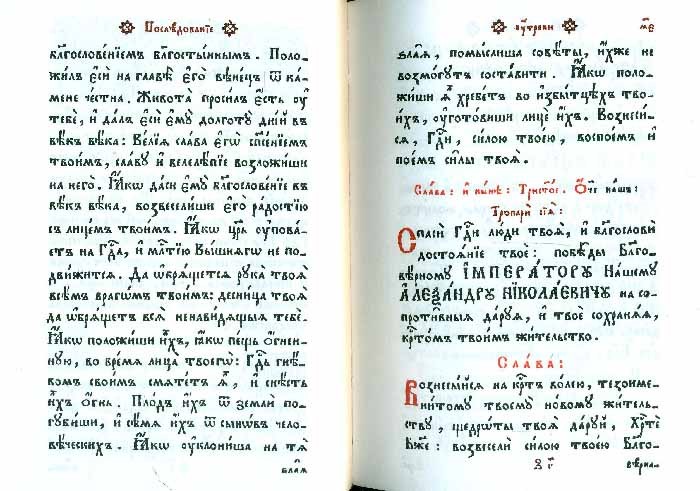 Послѣ́дованїе
бл҃гослове́нїемъ благосты́ннымъ. Поло-
жи́лъ є҆сѝ на главѣ̀ є҆гѡ̀ вѣне́цъ ѿ ка́-
мене че́стна. Живота̀ проси́лъ є҆́сть ᲂу҆
тебє̀, и҆ да́лъ є҆сѝ є҆мꙋ̀ долготꙋ̀ дні́й въ
вѣ́къ вѣ́ка: Ве́лїѧ сла́ва є҆гѡ̀ сп҃се́нїемъ
твои́мъ, сла́вꙋ и҆ велелѣ́пїе возложи́ши
на него̀. Ꙗ҆́кѡ да́си є҆мꙋ̀ бл҃гослове́нїе въ
вѣ́къ вѣ́ка, возвесели́ши є҆го̀ ра́достїю
съ лице́мъ твои́мъ. Ꙗ҆́кѡ цр҃ь ᲂу҆пова́-
етъ на гдⷭ҇а, и҆ млⷭ҇тїю вы́шнѧгѡ не по-
дви́житсѧ. Да ѡ҆брѧ́щетсѧ рꙋка̀ твоѧ̀
всѣ̑мъ врагѡ́мъ твои̑мъ: десни́ца твоѧ̀
да ѡ҆брѧ́щетъ всѧ̑ ненави́дѧщыѧ тебѐ.
Ꙗ҆́кѡ положи́ши и҆̀хъ, ꙗ҆́кѡ пе́щь ѻ҆́гнен-
нꙋю, во вре́мѧ лица̀ твоегѡ̀: гдⷭ҇ь гнѣ́-
вомъ свои́мъ смѧте́тъ ѧ҆̀, и҆ снѣ́сть
и҆̀хъ ѻ҆́гнь. Пло́дъ и҆́хъ ѿ землѝ по-
гꙋби́ши, и҆ сѣ́мѧ и҆́хъ ѿ сынѡ́въ чело-
вѣ́ческихъ. Ꙗ҆́кѡ ᲂу҆клони́ша на тѧ̀
ѕла̑ѧ
ᲂу҆́трени
м҃є
ѕла̑ѧ, помы́слиша совѣ́ты, и҆́хже не
возмо́гꙋтъ соста́вити. Ꙗ҆́кѡ поло-
жи́ши ѧ҆̀ хребе́тъ во и҆збы́тцѣхъ тво-
и́хъ, ᲂу҆гото́виши лицѐ и҆́хъ. Вознеси́-
сѧ, гдⷭ҇и, си́лою твое́ю, воспое́мъ и҆
пое́мъ си̑лы твоѧ̑.
Сла́ва: и҆ ны́нѣ: Трист҃о́е. Ѻ҆́ч҃е на́шъ:
Тропарѝ сїѧ̑:
Спасѝ гдⷭ҇и лю́ди твоѧ̑, и҆ благословѝ
достоѧ́нїе твоѐ: побѣ́ды Благо-
вѣ́рномꙋ ІМПЕРАТОРꙊ Нашемꙋ
АЛЕѮАНДРꙊ НІКОЛАЕВИЧꙊ на со-
проти̑вныѧ да́рꙋѧ, и҆ твоѐ сохранѧ́ѧ,
крⷭ҇то́мъ твои́мъ жи́тельство.
СЛАВА:
Вознесы́йсѧ на крⷭ҇тъ во́лею, тезоиме-
ни́томꙋ твоемꙋ̀ но́вомꙋ жи́тель-
ствꙋ, щедрѡ́ты твоѧ̑ да́рꙋй, хрⷭ҇тѐ
бж҃е: возвеселѝ си́лою твое́ю Благо-
вѣрна-